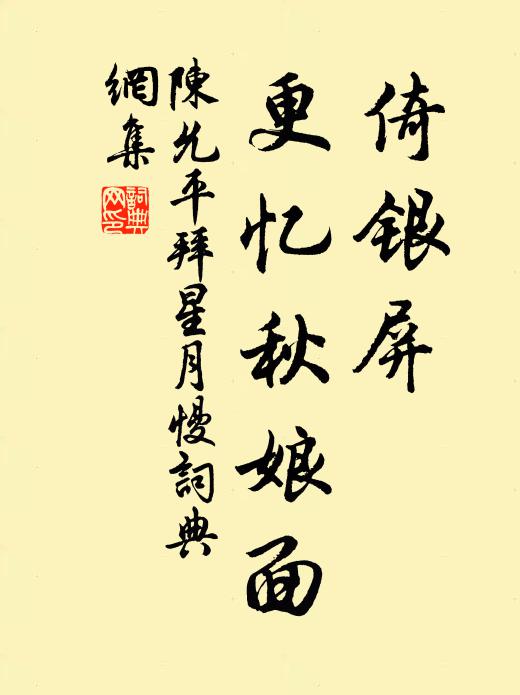 倚银屏
更忆秋娘面
陳允平拜星月慢詞典
網集
詞典
网印